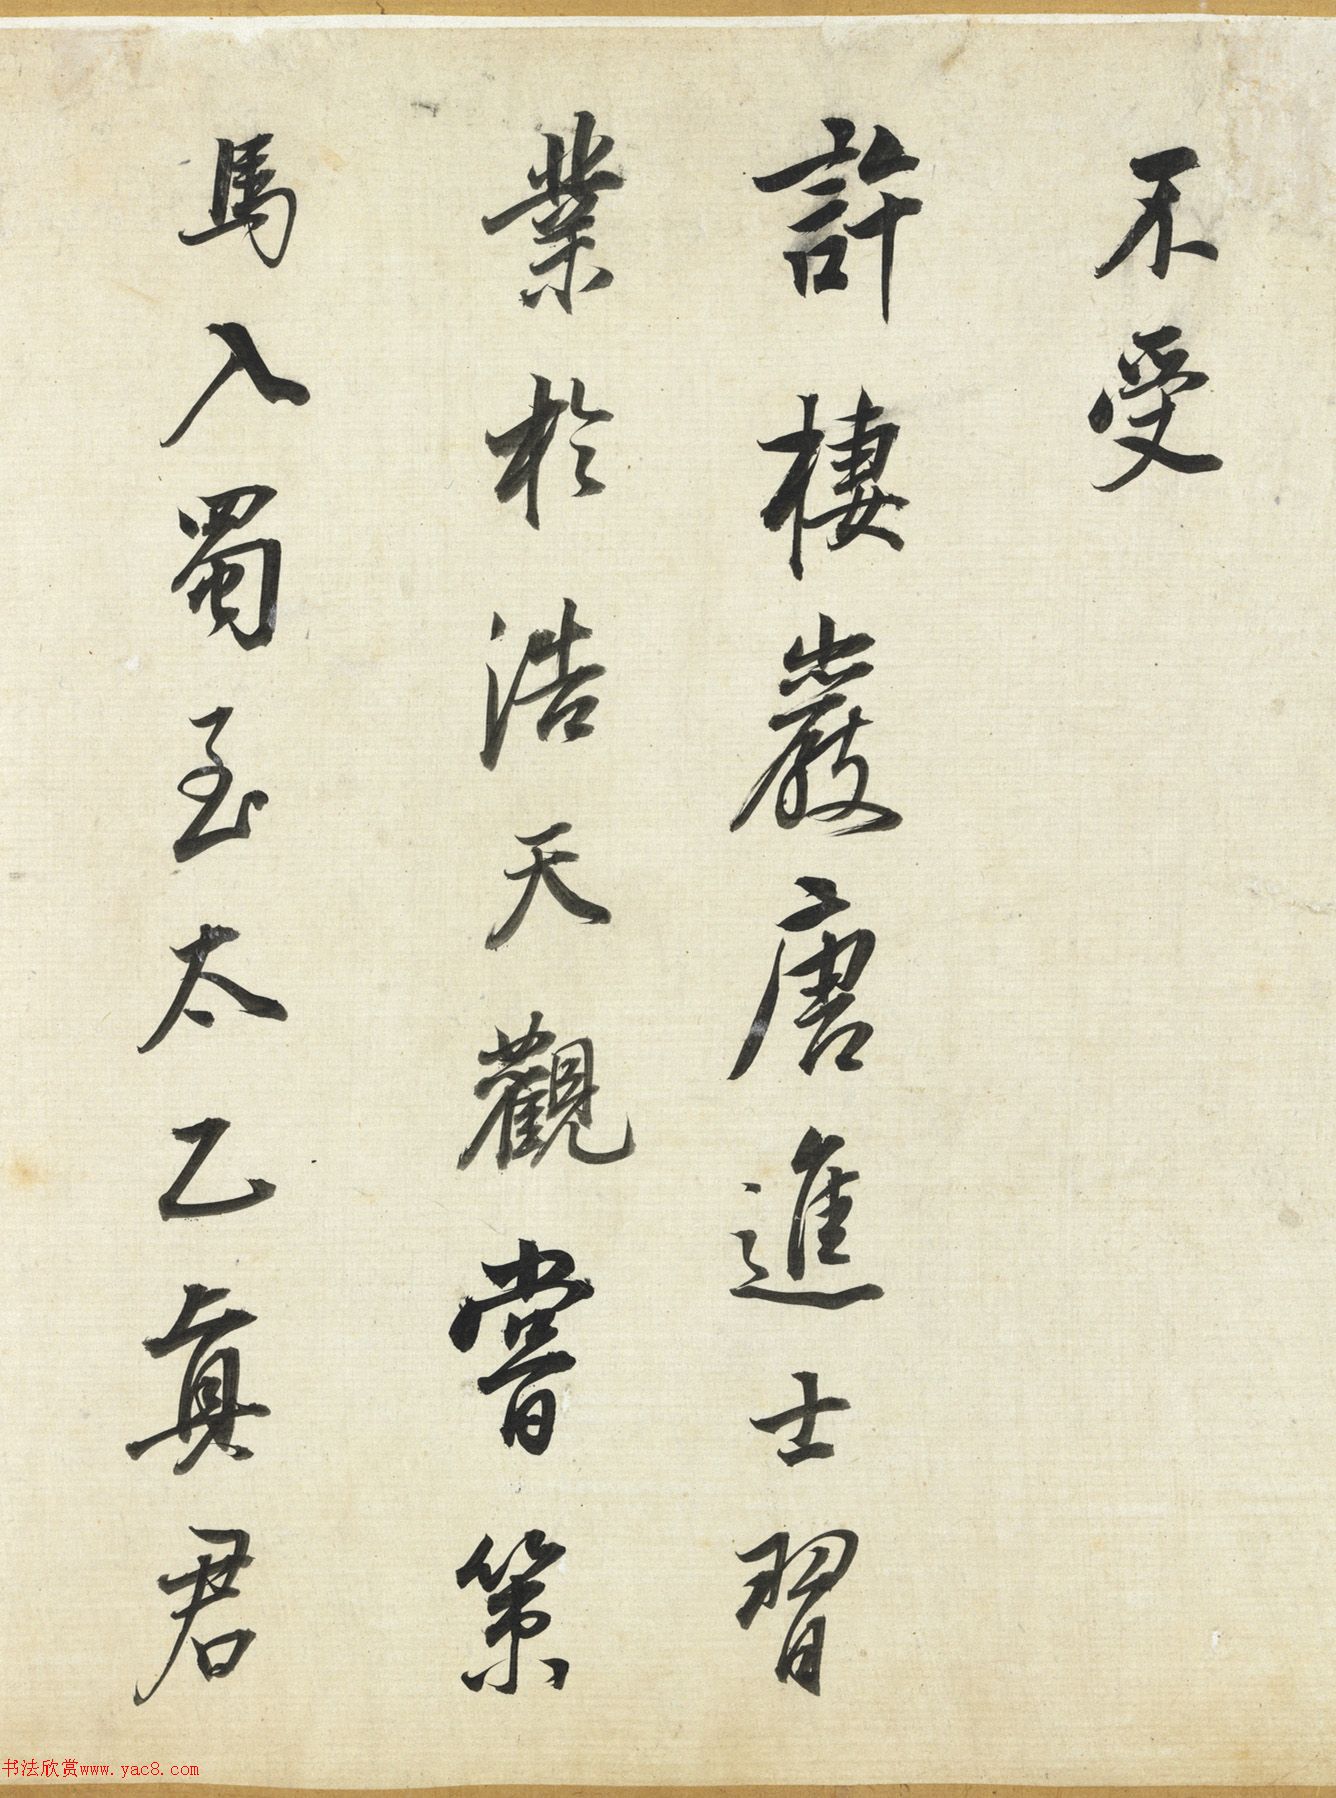 不受
許棲巖唐進士習
業於浩天觀嘗策
馬入蜀至太乙真君
书法欣赏www.yac8.com